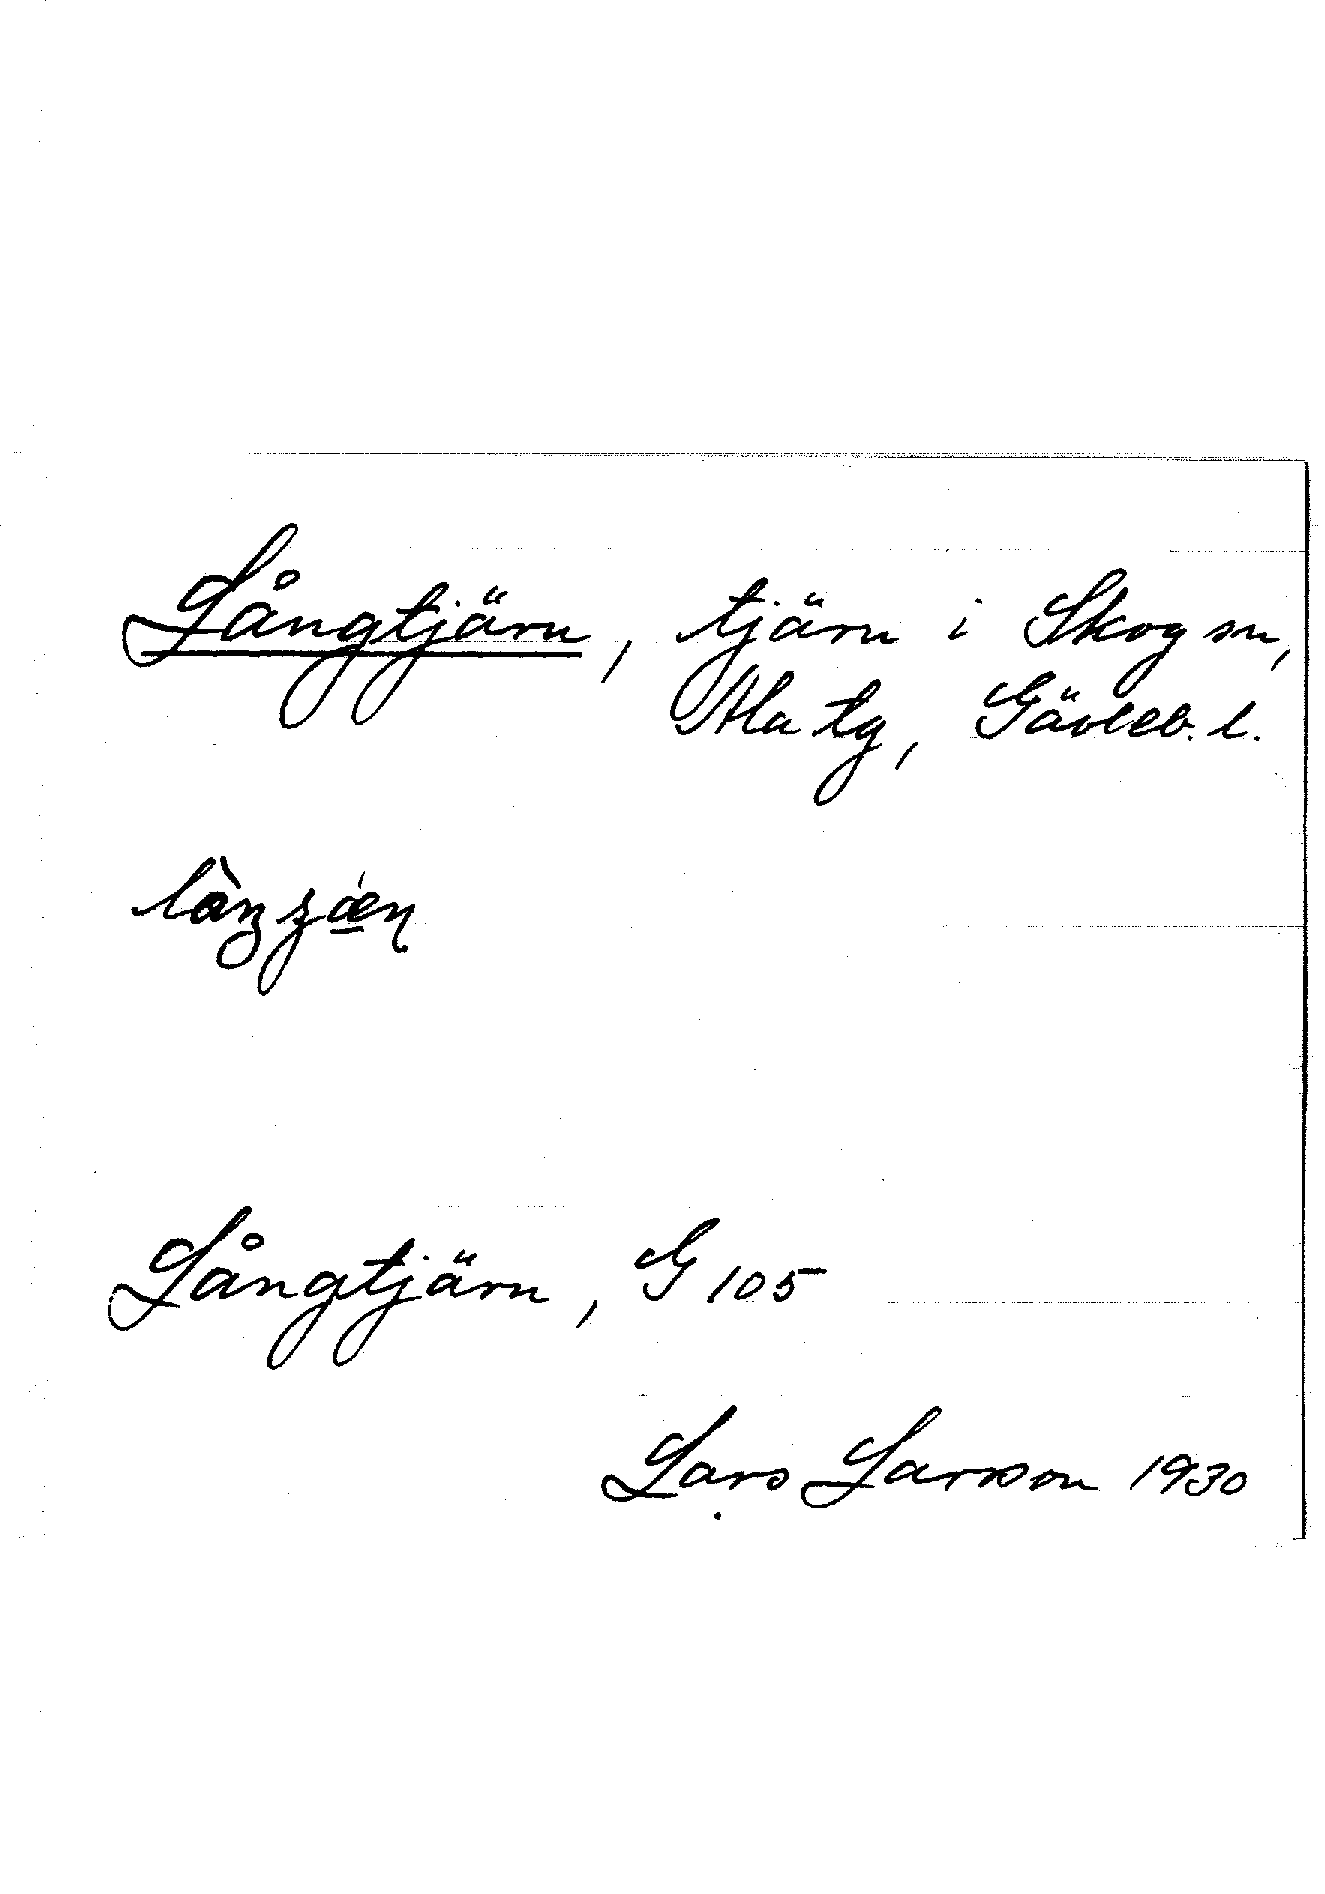 Långtjärn, tjärn i Skog sn,
Ala tg, Gävleb. l.
Långtjärn, G 105
Lars Larsson 1930